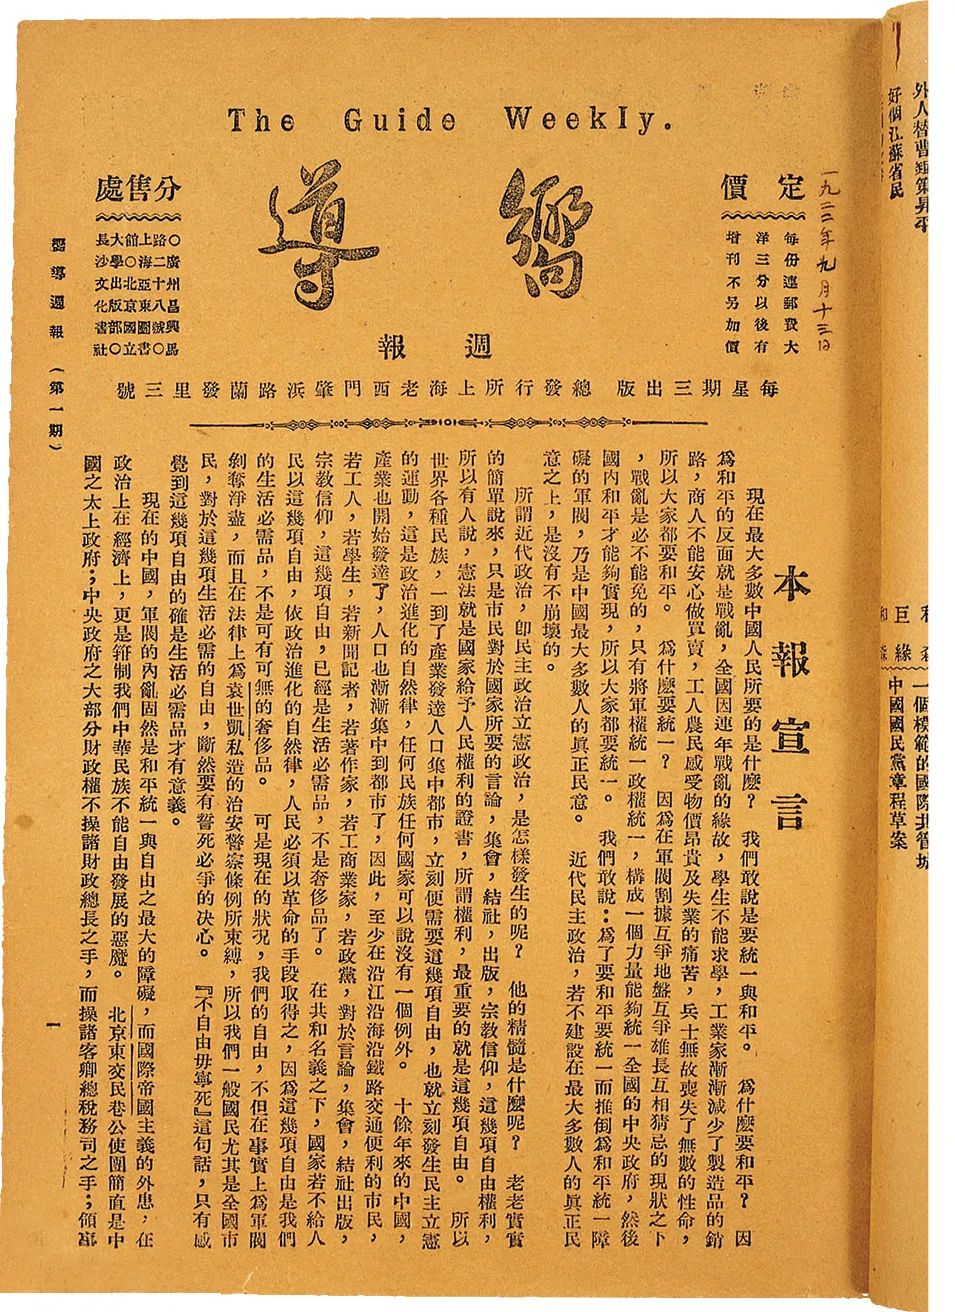 The Guide Weekly.
一九二二年九月十三日
定價
每份連郵費大
洋三分以後有
增刊不另加價
嚮導
週報
分售處
○廣州昌興馬
路二十八號○
上海亞東圖書
館○北京國立
大學出版部○
長沙文化書社
每星期三出版 總發行所上海老西門肇浜路蘭發里三號
本報宣言
現在最大多數中國人民所要的是什麼? 我們敢說是要統一與和平。 為什麼要和平? 因
為和平的反面就是戰亂,全國因連年戰亂的緣故,學生不能求學,工業家漸漸減少了製造品的銷
路,商人不能安心做買賣,工人農民感受物價昂貴及失業的痛苦,兵士無故喪失了無數的性命,
所以大家都要和平。 為什麼要統一? 因為在軍閥割據互爭地盤互爭雄長互相猜忌的現狀之下
,戰亂是必不能免的,只有將軍權統一政權統一,構成一個力量能夠統一全國的中央政府,然後
國內和平才能夠實現,所以大家都要統一。 我們敢說:為了要和平要統一而推倒為和平統一障
礙的軍閥,乃是中國最大多數人的真正民意。 近代民主政治,若不建設在最大多數人的真正民
意之上,是沒有不崩壞的。
所謂近代政治,即民主政治立憲政治,是怎樣發生的呢? 他的精髓是什麼呢? 老老實實
的簡單說來,只是市民對於國家所要的言論,集會,結社,出版,宗教信仰,這幾項自由權利,
所以有人說,憲法就是國家給予人民權利的證書,所謂權利,最重要的就是這幾項自由。 所以
世界各種民族,一到了產業發達人口集中都市,立刻便需要這幾項自由,也就立刻發生民主立憲
的運動,這是政治進化的自然律,任何民族任何國家可以說沒有一個例外。 十餘年來的中國,
產業也開始發達了,人口也漸漸集中到都市了,因此,至少在沿江沿海沿鐵路交通便利的市民,
若工人,若學生,若新聞記者,若著作家,若工商業家,若政黨,對於言論,集會,結社出版,
宗教信仰,這幾項自由,已經是生活必需品,不是奢侈品了。 在共和名義之下,國家若不給人
民以這幾項自由,依政治進化的自然律,人民必須以革命的手段取得之,因為這幾項自由是我們
的生活必需品,不是可有可無的奢侈品。 可是現在的狀況,我們的自由,不但在事實上為軍閥
剝奪淨盡,而且在法律上為袁世凱私造的治安警察條例所束縛,所以我們一般國民尤其是全國市
民,對於這幾項生活必需的自由,斷然要有誓死必爭的決心。 『不自由毋寧死』這句話,只有感
覺到這幾項自由的確是生活必需品才有意義。
現在的中國,軍閥的內亂固然是和平統一與自由之最大的障礙,而國際帝國主義的外患,在
政治上在經濟上,更是箝制我們中華民族不能自由發展的惡魔。 北京東交民巷公使團簡直是中
國之太上政府;中央政府之大部分財政權不操諸財政總長之手,而操諸客卿總稅務司之手;領事
嚮導週報 (第一期)
一
外人替曹錕策昇平
好個江蘇省民
一個模範的國際共管城
中國國民黨章程草案